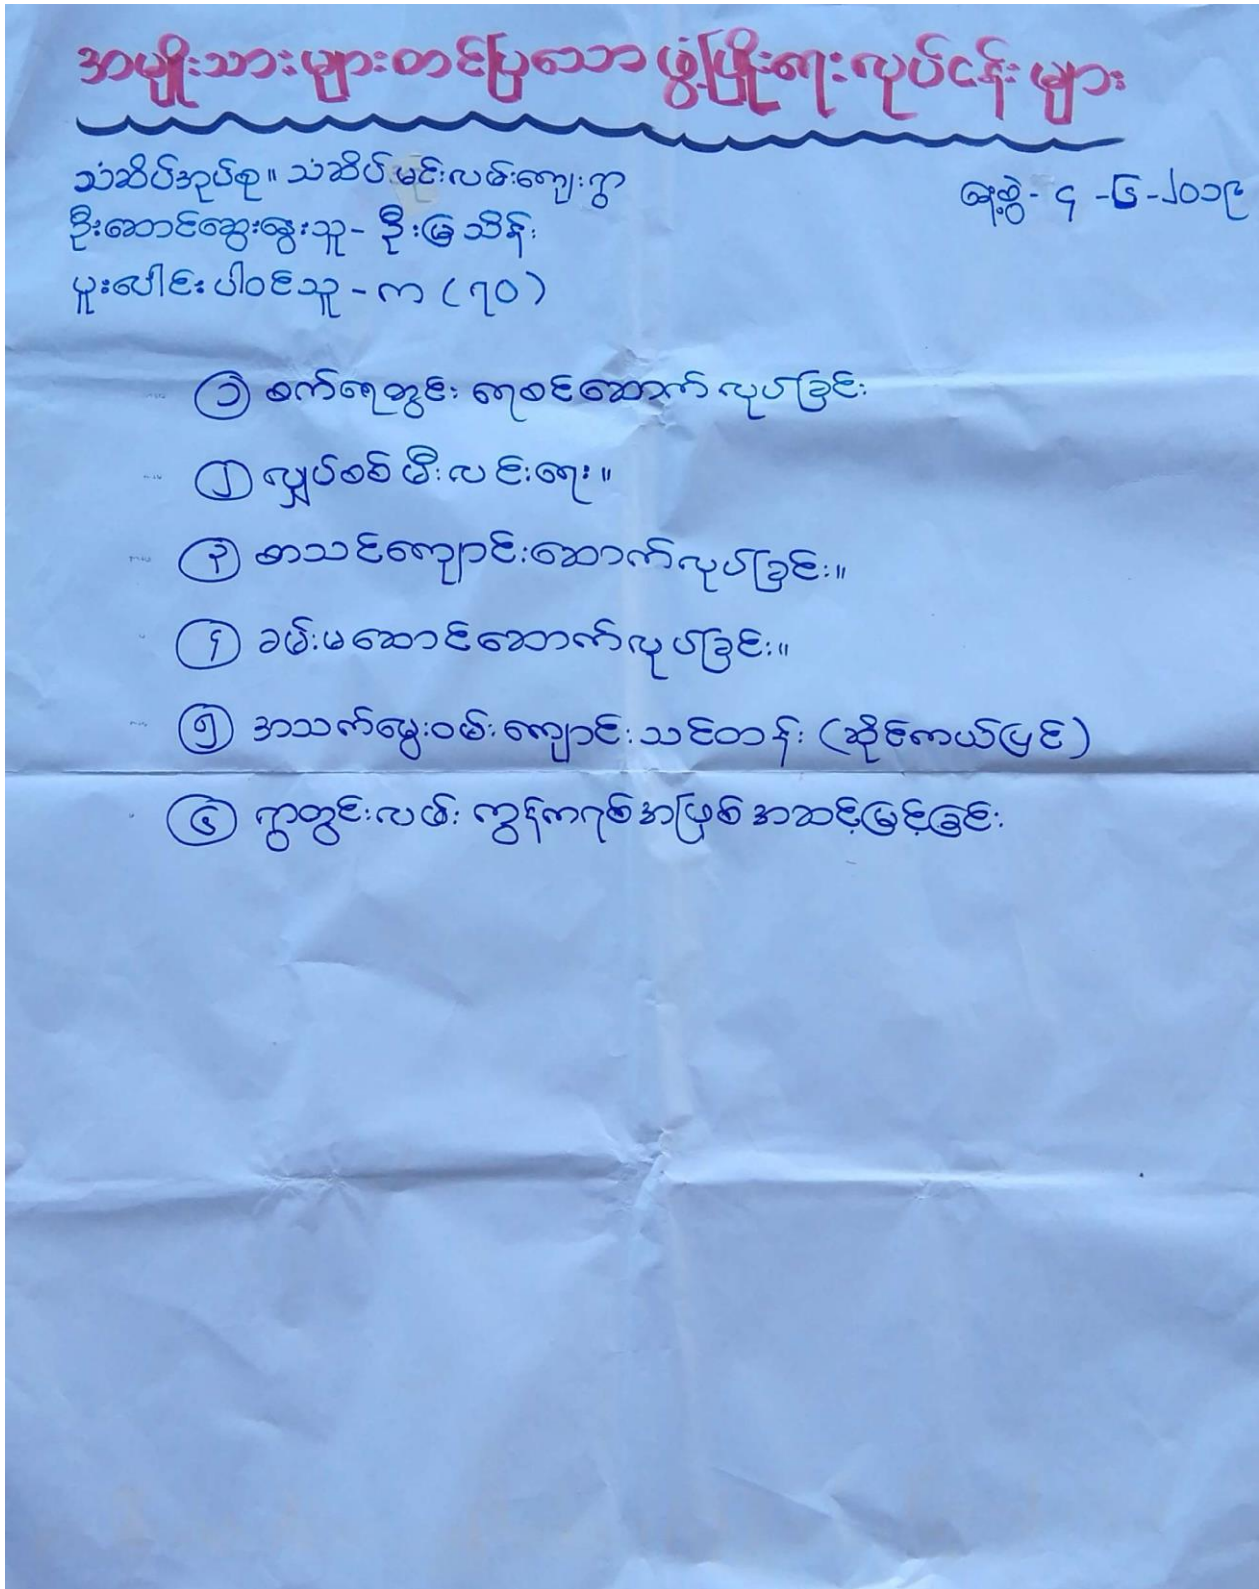 အမျိုးသားများတင်ပြသော ဖွံ့ဖြိုးရေးလုပ်ငန်းများ
သံဆိပ်အုပ်စု။ သံဆိပ်မင်းလမ်းကျေးရွာ
နေ့စွဲ - ၄ - ၆ - ၂၀၁၉
ဦးဆောင်ဆွေးနွေးသူ - ဦးမြသိန်း
ပူးပေါင်းပါဝင်သူ - ကျား (၇၀)
၁ စက်ရေတွင်း ရေစင်ဆောက်လုပ်ခြင်း
၂ လျှပ်စစ်မီးလင်းရေး။
၃ စာသင်ကျောင်းဆောက်လုပ်ခြင်း။
၄ ခမ်းမဆောင်ဆောက်လုပ်ခြင်း။
၅ အသက်မွေးဝမ်းကျောင်းသင်တန်း (ဆိုင်ကယ်ပြင်)
၆ ရွာတွင်းလမ်း ကွန်ကရစ်အဖြစ် အဆင့်မြှင့်ခြင်း